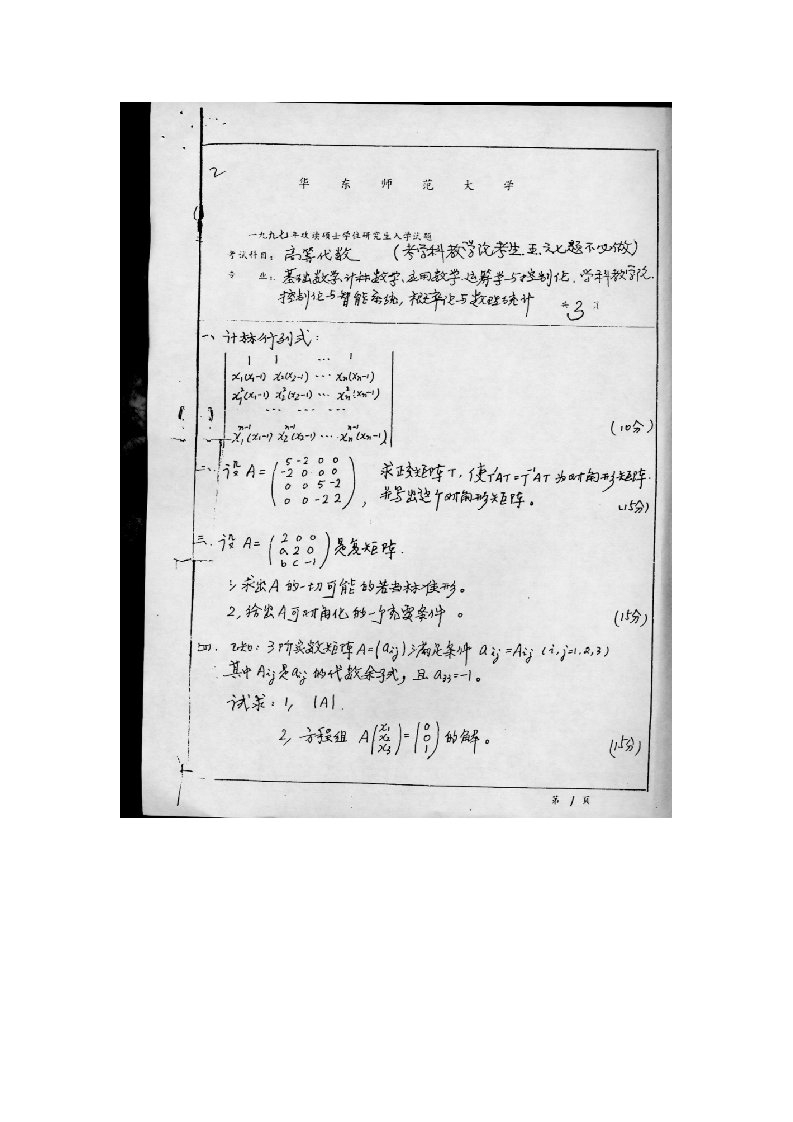 2
华东师范大学
一九九七年攻读硕士学位研究生入学试题
考试科目: 高等代数 (考学科教学论考生五、六、七题不必做)
专业: 基础数学、计算数学、应用数学、运筹学与控制论、学科教学论、
控制论与智能系统, 概率论与数理统计 共3页
一、计算行列式:
1 1 ⋯ 1
x₁(x₁-1) x₂(x₂-1) ⋯ xₙ(xₙ-1)
x₁²(x₁-1) x₂²(x₂-1) ⋯ xₙ²(xₙ-1)
⋯ ⋯ ⋯
x₁ⁿ⁻¹(x₁-1) x₂ⁿ⁻¹(x₂-1) ⋯ xₙⁿ⁻¹(xₙ-1)
(10分)
二、设 A = ( 5 -2 0 0
-2 0 0 0
0 0 5 -2
0 0 -2 2 ),
求正交矩阵T, 使T'AT=T⁻¹AT为对角形矩阵.
并写出这个对角形矩阵。 (15分)
三、设 A = ( 2 0 0
a 2 0
b c -1 ) 是复矩阵.
1, 求出A的一切可能的若当标准形。
2, 给出A可对角化的一个充要条件。 (15分)
四、已知: 3阶实数矩阵A=(aij)满足条件 aij=Aij (i,j=1,2,3)
其中Aij是aij的代数余子式, 且 a33=-1。
试求: 1, |A|.
2, 方程组 A(x₁ x₂ x₃) = (0 0 1) 的解。 (15分)
第 1 页